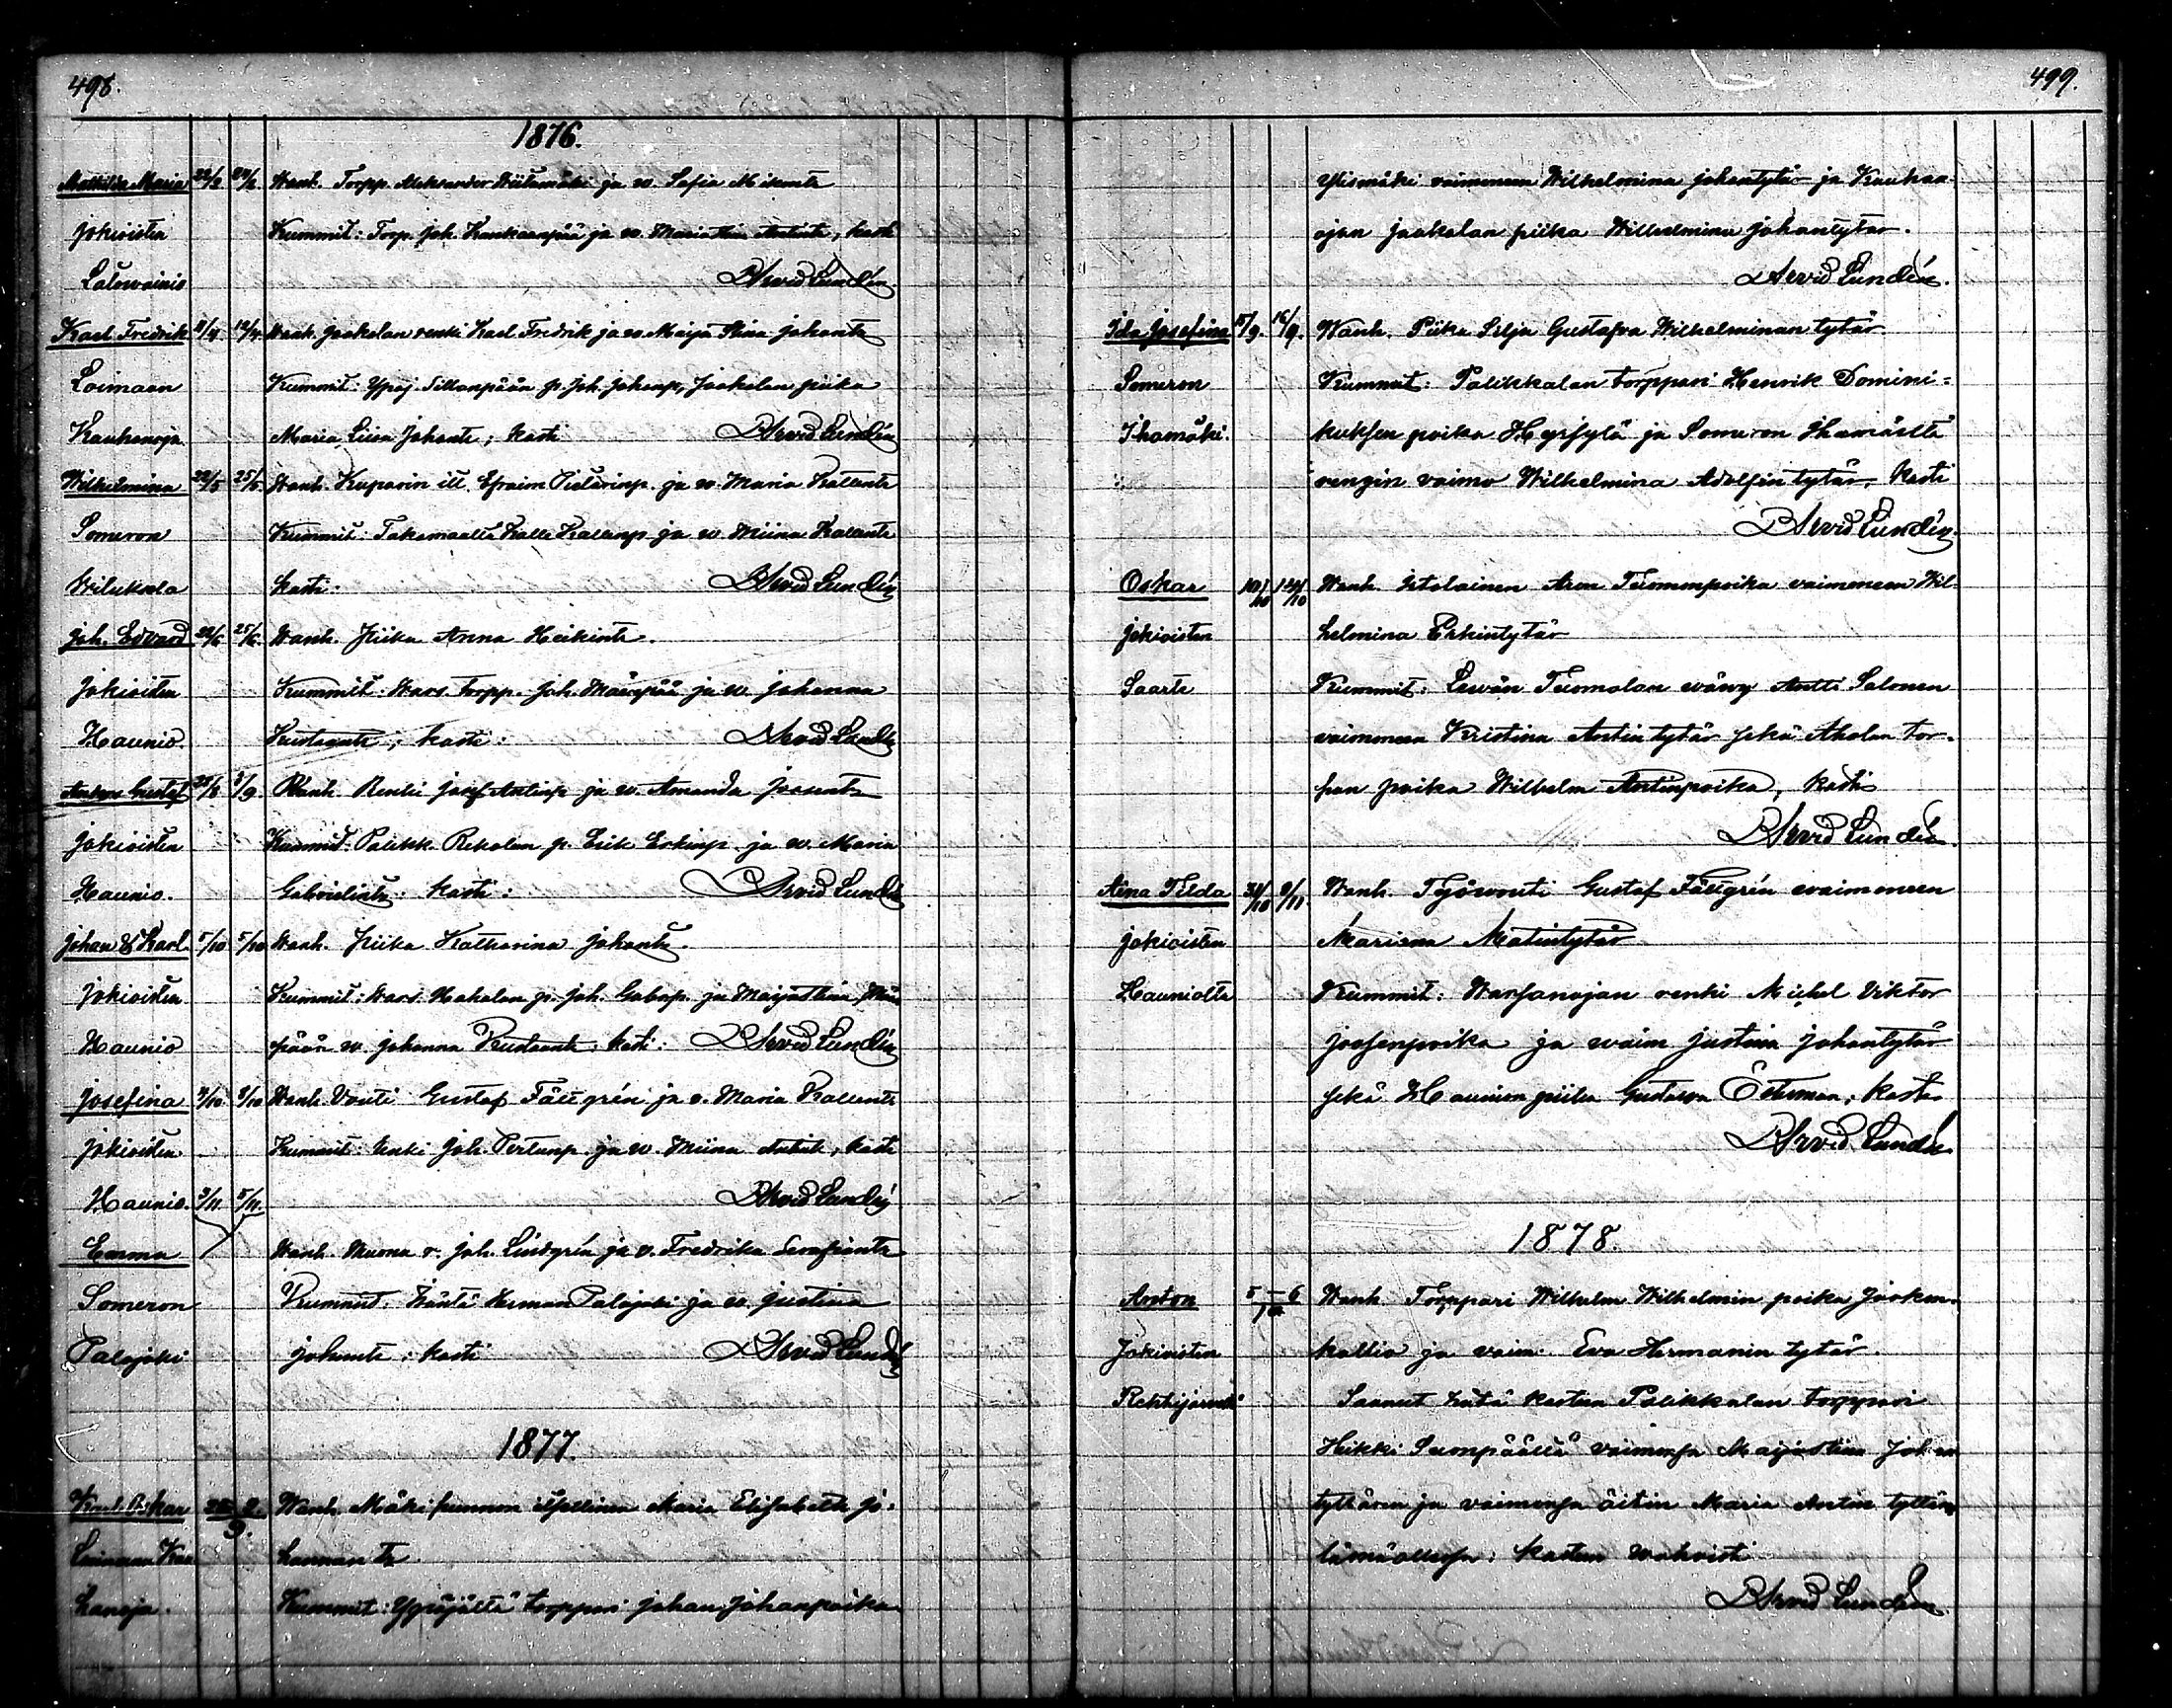 498.
1876.
Mathilda Maria 22/2 24/2 Wanh. Torpp. Aleksander Wiitamäki ja w. Sofia
Jokioisten Kummit: Torp. Joh. Kankaanpää ja w. Maria Antint:, kasti
Latowainio BArvid Lundén.
Karl Fredrik 11/4 12/4 Wanh. Jaakolan renki Karl Fredrik ja w. Maija Stina Johantr
Loimaan Kummit: Ypäj. Sillanpään p. Joh. Johanp, Jaakolan piika
Kauhanoja Maria Liisa Johantr; kasti BArvid Lundén
Wilhelmina 22/5 25/5 Wanh. Kuparin itl. Efraim ja w. Maria Kallentr
Someron Kummit: Takamaalta Kalle Kallenp ja w. Miina Kallentr
Wiluksela kasti: BArvid Lundén
Joh. Edvard 22/6 25/6. Wanh. Piika Anna Heikintr.
Jokioisten Kummit: Wars. torpp. Joh. Mäenpää ja w. Johanna
Haunio Kustaantr; kasti: BArvid Lundén
Gustaf 28/8 3/9. Wanh. Renki Josef Antinp ja w. Amanda Joosentr
Jokioisten Kummit: Palikk. Rekolan p. Erik Erkinp. ja w. Maria
Haunio. Gabrielintr: kasti: BArvid Lundén
Johan & Karl. 5/10 5/10 Wanh. Piika Katharina Johantr.
Jokioisten Kummit: Wars. Hakalan p. Joh. Gabrp. ja Maijastina
Haunio pään w. Johanna Kustaantr. kasti: BArvid Lundén
Josefina 7/10 8/10 Wanh. Vouti Gustaf Fältgrén ja v. Maria Kallentr
Jokioisten Kummit: Renki Joh. Pertunp. ja w. Miina Antintr, kasti
Haunio. 3/11 5/11. BArvid Lundén
Emma Wanh. Muona r. Joh. Lindgrén ja v. Fredrika Serafiantr
Someron Kummit: Herman Palojoki ja w. Justina
Palojoki Johantr; kasti BArvid Lundén
1877.
Karl Oskar Wanh. Mäkisunnon itsellinen Maria Elisabeth Jo-
Loimaan Kau hanman tr.
hanoja. Kummit: Ypäjältä torppari Johan Johanpoika
499.
Ylismäki vaimoneen Wilhelmina Johantytär ja Kauhan-
ojan Jaakolan piika Wilhelmina Johantytär.
BArvid Lundén.
Ida Josefina 15/9. 16/9. Wanh. Piika Selja Gustafva Wilhelminan tytär
Someron Kummit: Palikkalan torppari Henrik Domini=
Ihamäki. kuksen poika Hyrsylä ja Someron Ihamäeltä
rengin vaimo Wilhelmina Adolfin tytär, kasti
BArvid Lundén.
Oskar 10/10 14/10 Wanh. Itolainen Aron Tuomonpoika vaimoneen Wil-
Jokioisten helmina Erkintytär
Saarta Kummit: Lewän Tuomolan wäwy Antti Salonen
vaimoneen Kristina Antintytär sekä Aholan tor-
pan poika Wilhelm Antinpoika, kasti
BArvid Lundén.
Aina Tilda 31/10 9/11 Wanh. Työwouti Gustaf Fältgrén waimoneen
Jokioisten Mariana Matintytär
Hauniolta Kummit: Warsanojan renki Michel Viktor
Joosenpoika ja waim Justiina Johantytär
sekä Haunion piika Gustaava Öhman, kasti
BArvid Lundén
1878.
Anton 5 – 6 Wanh. Torppari Wilhelm Wilhelmin poika Jooken-
Jokioisten kallio ja vaim. Eva Hermanin tytär.
Rehtijärveltä Saanut hätä kasteen Palikkalan torppari
Heikki Suonpäältä vaimonsa Maijastiina Johan
tyttären ja vaimonsa äitin Maria Antin tyttären
läsnäollessa: kasteen wahvisti
BArvid Lundén.